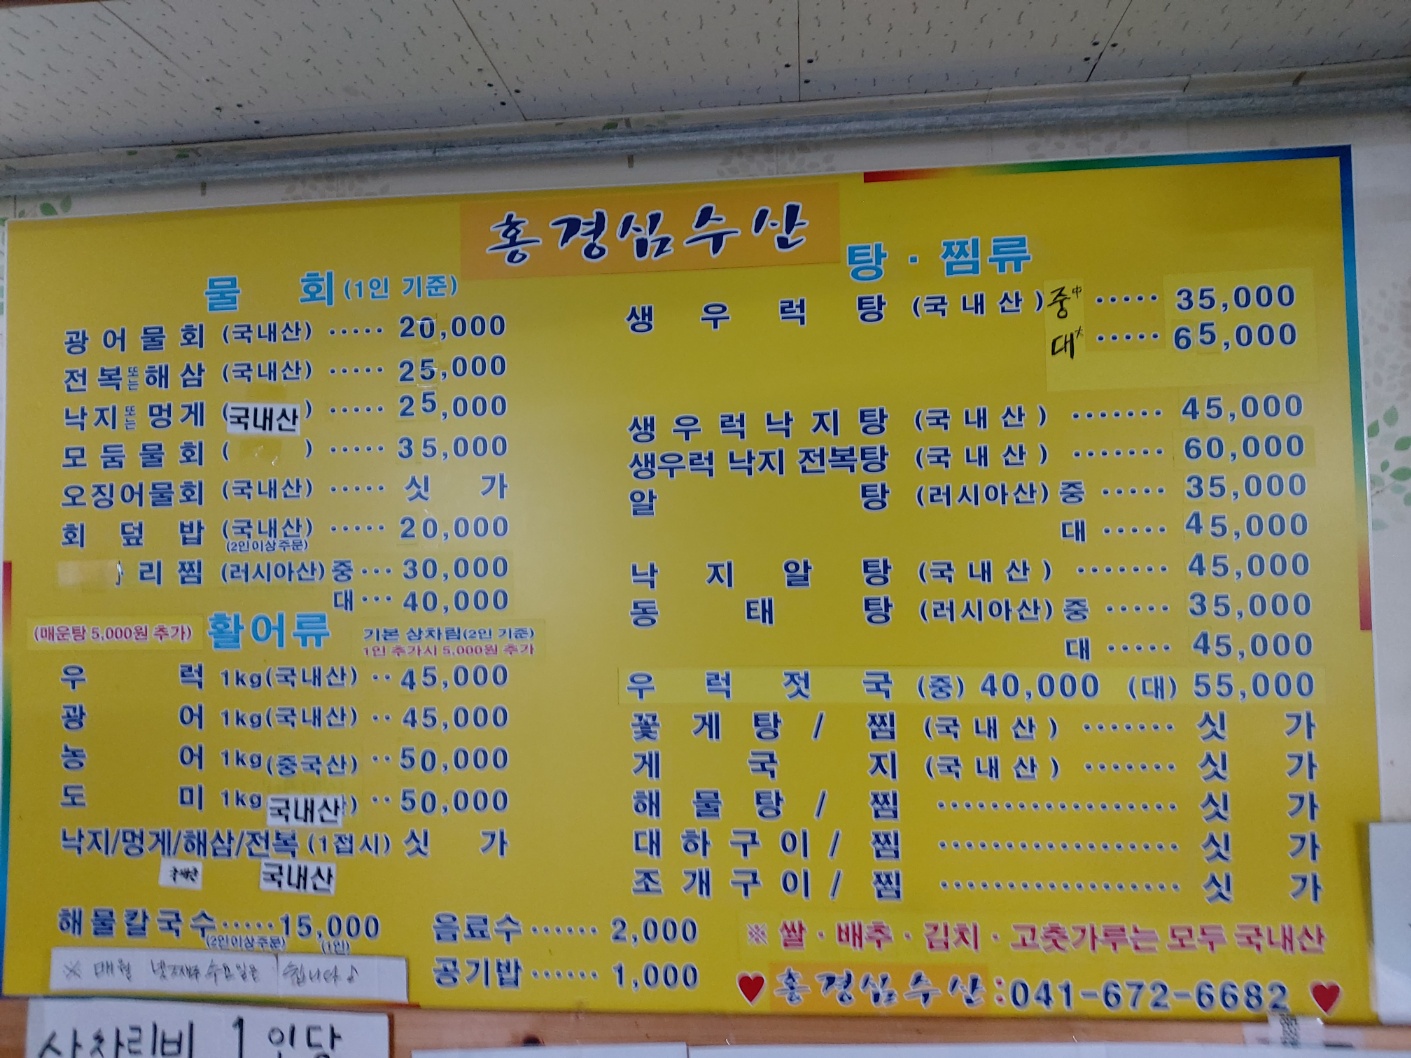 홍경심수산
물 회 (1인 기준)
광어물회 (국내산) ····· 20,000
전복또는해삼 (국내산) ····· 25,000
낙지또는멍게 (국내산) ····· 25,000
모둠물회 ( ) ····· 35,000
오징어물회 (국내산) ····· 싯 가
회덮밥 (국내산) ····· 20,000
(2인이상주문)
리찜 (러시아산) 중 ··· 30,000
대 ··· 40,000
(매운탕 5,000원 추가) 활어류 기본 상차림(2인 기준)
1인 추가시 5,000원 추가
우 럭 1kg(국내산) ·· 45,000
광 어 1kg(국내산) ·· 45,000
농 어 1kg(중국산) ·· 50,000
도 미 1kg 국내산) ·· 50,000
낙지/멍게/해삼/전복 (1접시) 싯 가
국내산
해물칼국수 ····· 15,000
(2인이상주문) (1인)
음료수 ······ 2,000
공기밥 ······ 1,000
※ 매월
탕 · 찜류
생우럭탕 (국내산) 중中 ····· 35,000
대大 ····· 65,000
생우럭낙지탕 (국내산) ······· 45,000
생우럭 낙지 전복탕 (국내산) ······· 60,000
알 탕 (러시아산) 중 ····· 35,000
대 ····· 45,000
낙지알탕 (국내산) ······· 45,000
동태탕 (러시아산) 중 ····· 35,000
대 ····· 45,000
우럭젓국 (중) 40,000 (대) 55,000
꽃게탕 / 찜 (국내산) ······· 싯 가
게국지 (국내산) ······· 싯 가
해물탕 / 찜 ·················· 싯 가
대하구이 / 찜 ·················· 싯 가
조개구이 / 찜 ·················· 싯 가
※ 쌀 · 배추 · 김치 · 고춧가루는 모두 국내산
♥홍경심수산:041-672-6682♥
상차림비 1인당